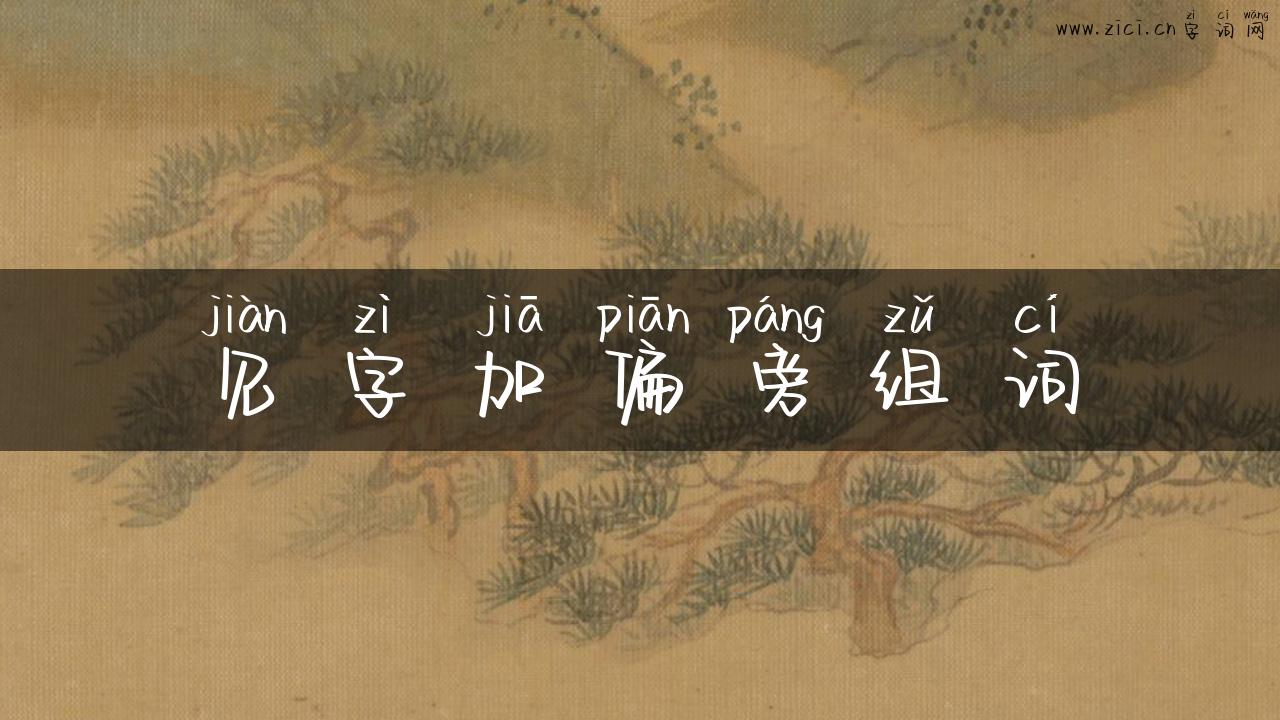 www.zīcī.cn zì cí wǎng
字词网
jiàn zì jiā piān páng zǔ cí
见字加偏旁组词